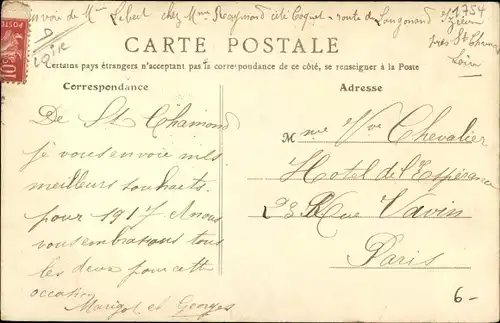 envoie de Mme Lebert chez Mme Raymond cité Coquet route de
CARTE POSTALE
Certains pays étrangers n'acceptant pas la correspondance de ce côté, se renseigner à la Poste
près St Chamond
Loire
POSTES
10
Correspondance
Adresse
De St Chamond
je vous envoie mes
meilleurs souhaits
pour 1917. A nous
vous embrassons tous
les deux pour cette
occation
Marigot et Georges
Mme Vve Chevalier
Hotel de l'Espérance
23 Rue Vavin
Paris
6-